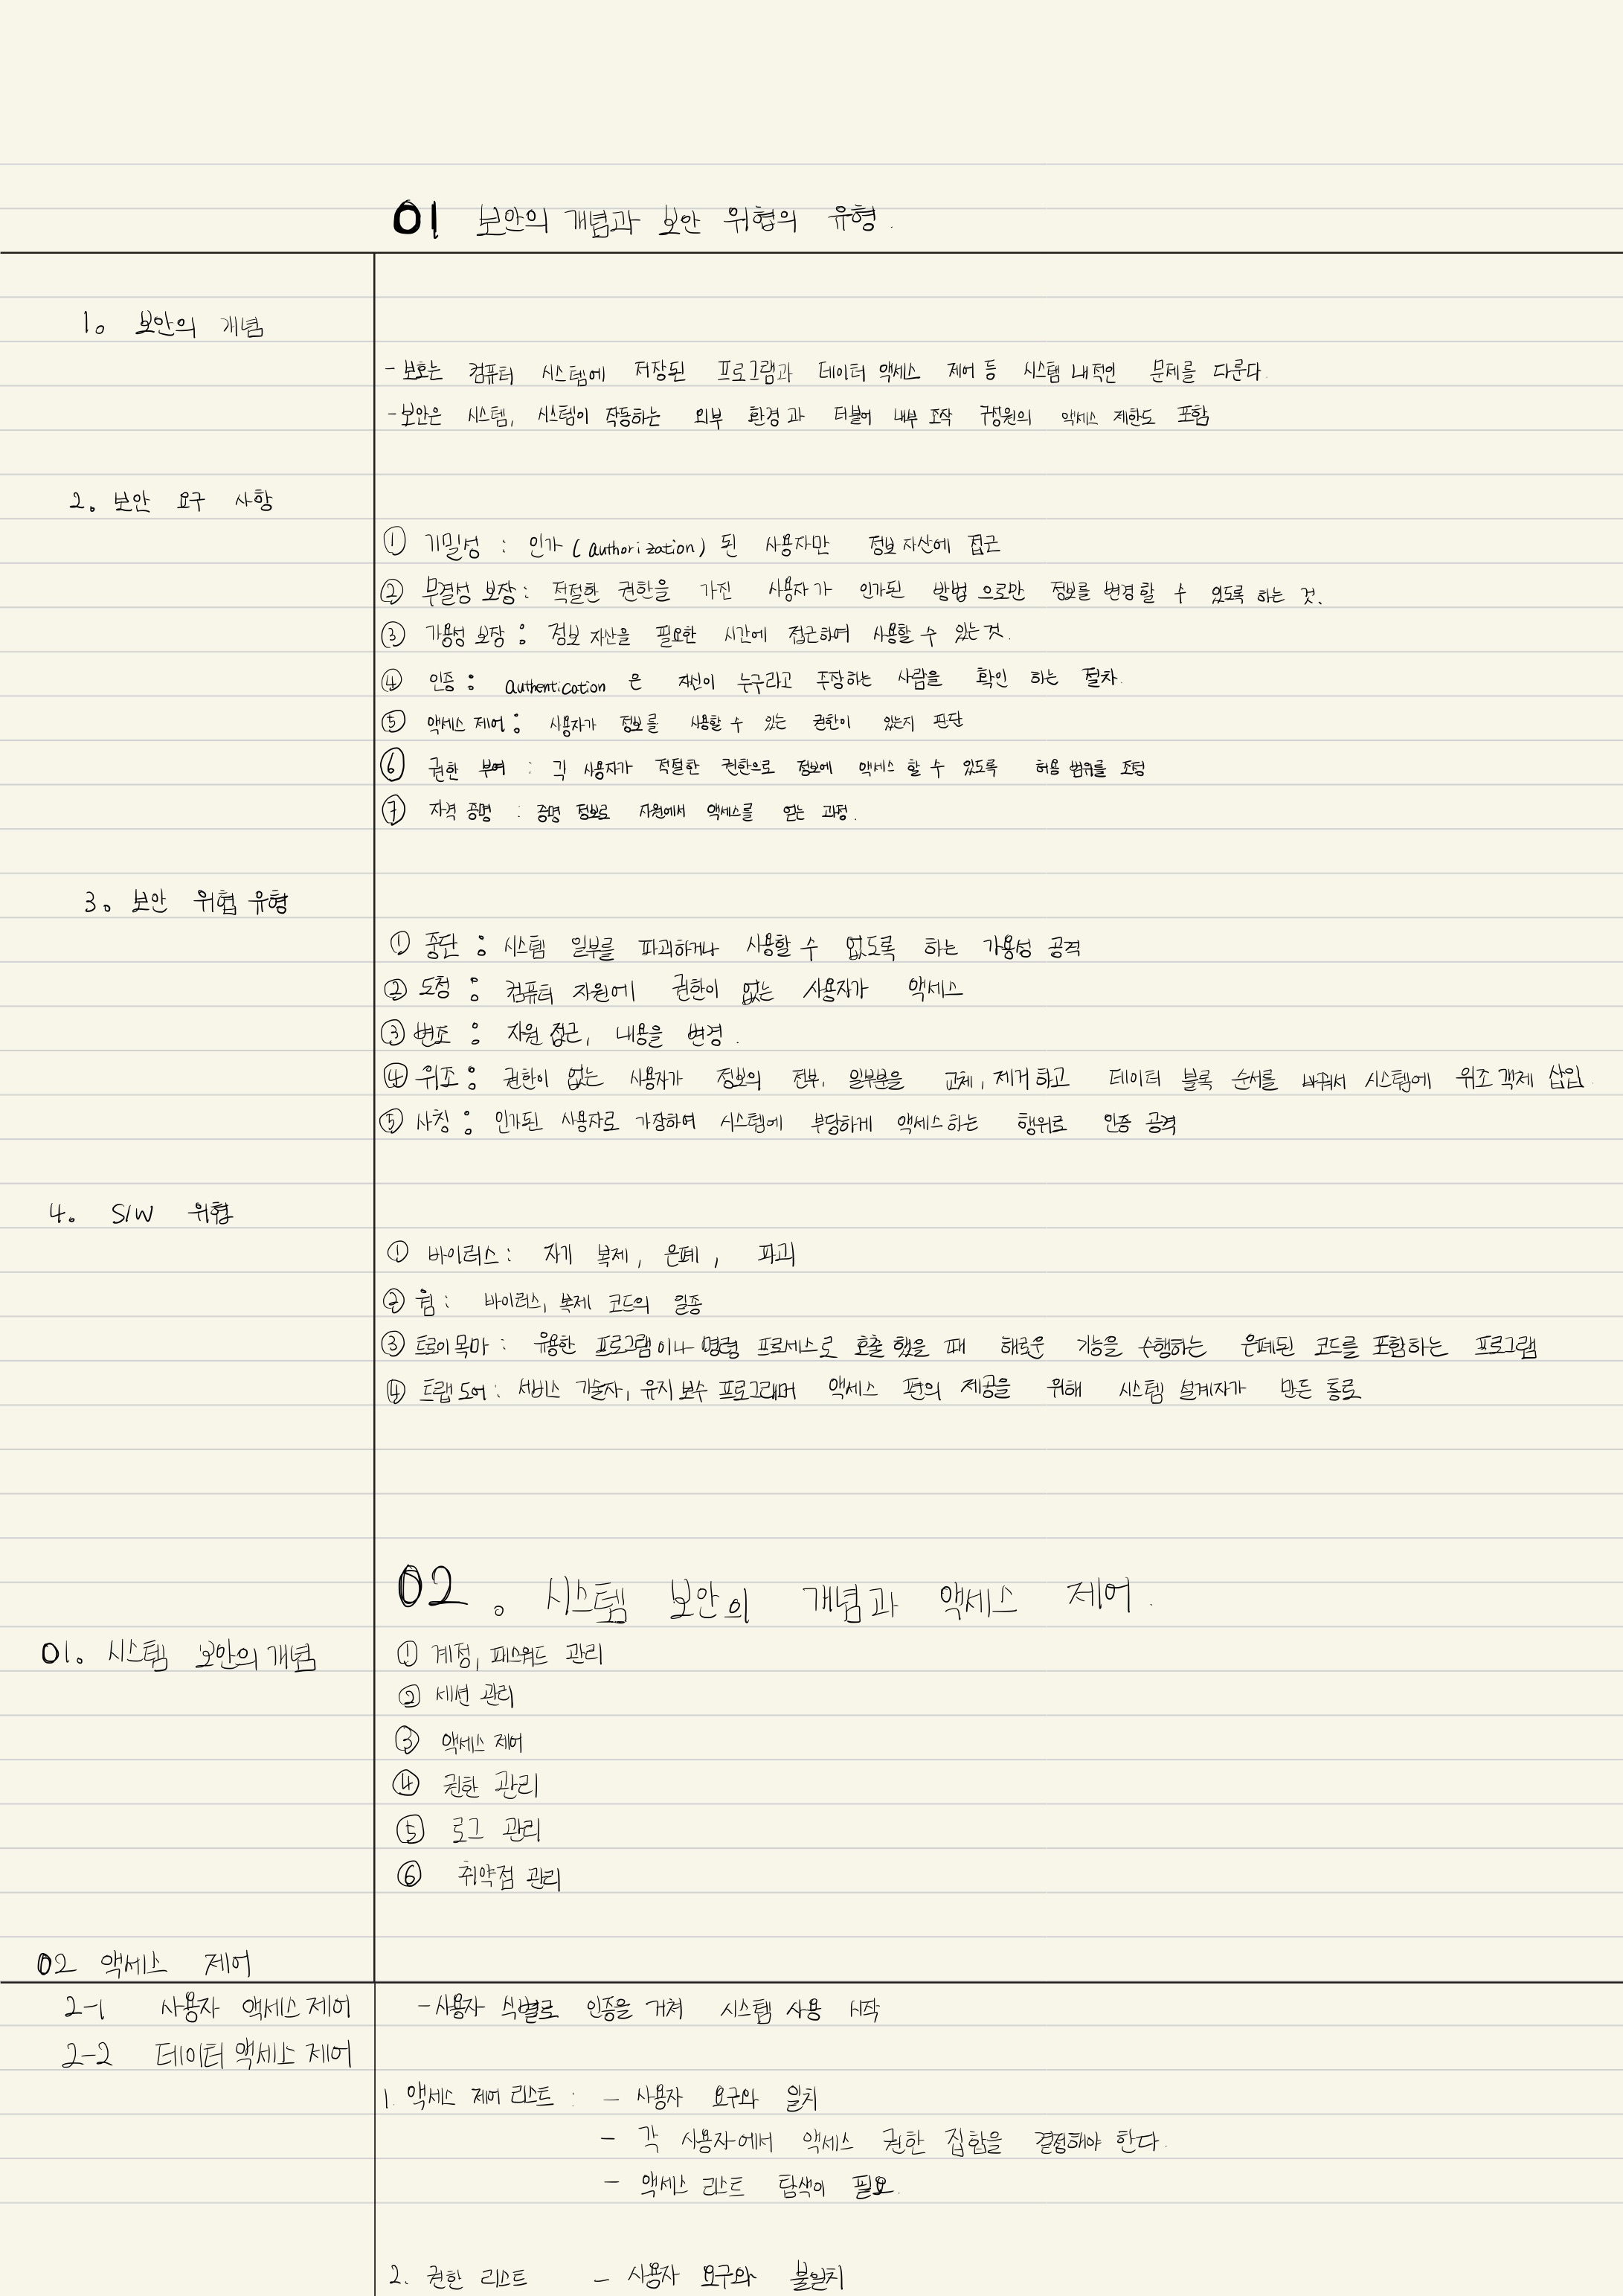 01 보안의 개념과 보안 위협의 유형.
1. 보안의 개념
- 보호는 컴퓨터 시스템에 저장된 프로그램과 데이터 액세스 제어 등 시스템 내적인 문제를 다룬다.
- 보안은 시스템, 시스템이 작동하는 외부 환경과 더불어 내부 조작 구성원의 액세스 제한도 포함
2. 보안 요구 사항
① 기밀성 : 인가 (authorization) 된 사용자만 정보 자산에 접근
② 무결성 보장 : 적절한 권한을 가진 사용자가 인가된 방법 으로만 정보를 변경할 수 있도록 하는 것.
③ 가용성 보장 : 정보 자산을 필요한 시간에 접근하여 사용할 수 있는 것.
④ 인증 : authentication 은 자신이 누구라고 주장하는 사람을 확인 하는 절차.
⑤ 액세스 제어 : 사용자가 정보를 사용할 수 있는 권한이 있는지 판단
⑥ 권한 부여 : 각 사용자가 적절한 권한으로 정보에 액세스 할 수 있도록 허용 범위를 조정
⑦ 자격 증명 : 증명 정보로 자원에서 액세스를 얻는 과정.
3. 보안 위협 유형
① 중단 : 시스템 일부를 파괴하거나 사용할 수 없도록 하는 가용성 공격
② 도청 : 컴퓨터 자원에 권한이 없는 사용자가 액세스
③ 변조 : 자원 접근, 내용을 변경.
④ 위조 : 권한이 없는 사용자가 정보의 전부, 일부분을 교체, 제거하고 데이터 블록 순서를 바꿔서 시스템에 위조 객체 삽입.
⑤ 사칭 : 인가된 사용자로 가장하여 시스템에 부당하게 액세스하는 행위로 인증 공격
4. S/W 위협
① 바이러스 : 자기 복제, 은폐, 파괴
② 웜 : 바이러스, 복제 코드의 일종
③ 트로이 목마 : 유용한 프로그램이나 명령 프로세스로 호출 했을 때 해로운 기능을 수행하는 은폐된 코드를 포함하는 프로그램
④ 트랩 도어 : 서비스 기술자, 유지 보수 프로그래머 액세스 편의 제공을 위해 시스템 설계자가 만든 통로
02. 시스템 보안의 개념과 액세스 제어.
01. 시스템 보안의 개념
① 계정, 패스워드 관리
② 세션 관리
③ 액세스 제어
④ 권한 관리
⑤ 로그 관리
⑥ 취약점 관리
02 액세스 제어
2-1 사용자 액세스 제어
- 사용자 식별로 인증을 거쳐 시스템 사용 시작
2-2 데이터 액세스 제어
1. 액세스 제어 리스트 : - 사용자 요구와 일치
- 각 사용자에서 액세스 권한 집합을 결정해야 한다.
- 액세스 리스트 탐색이 필요.
2. 권한 리스트 - 사용자 요구와 불일치